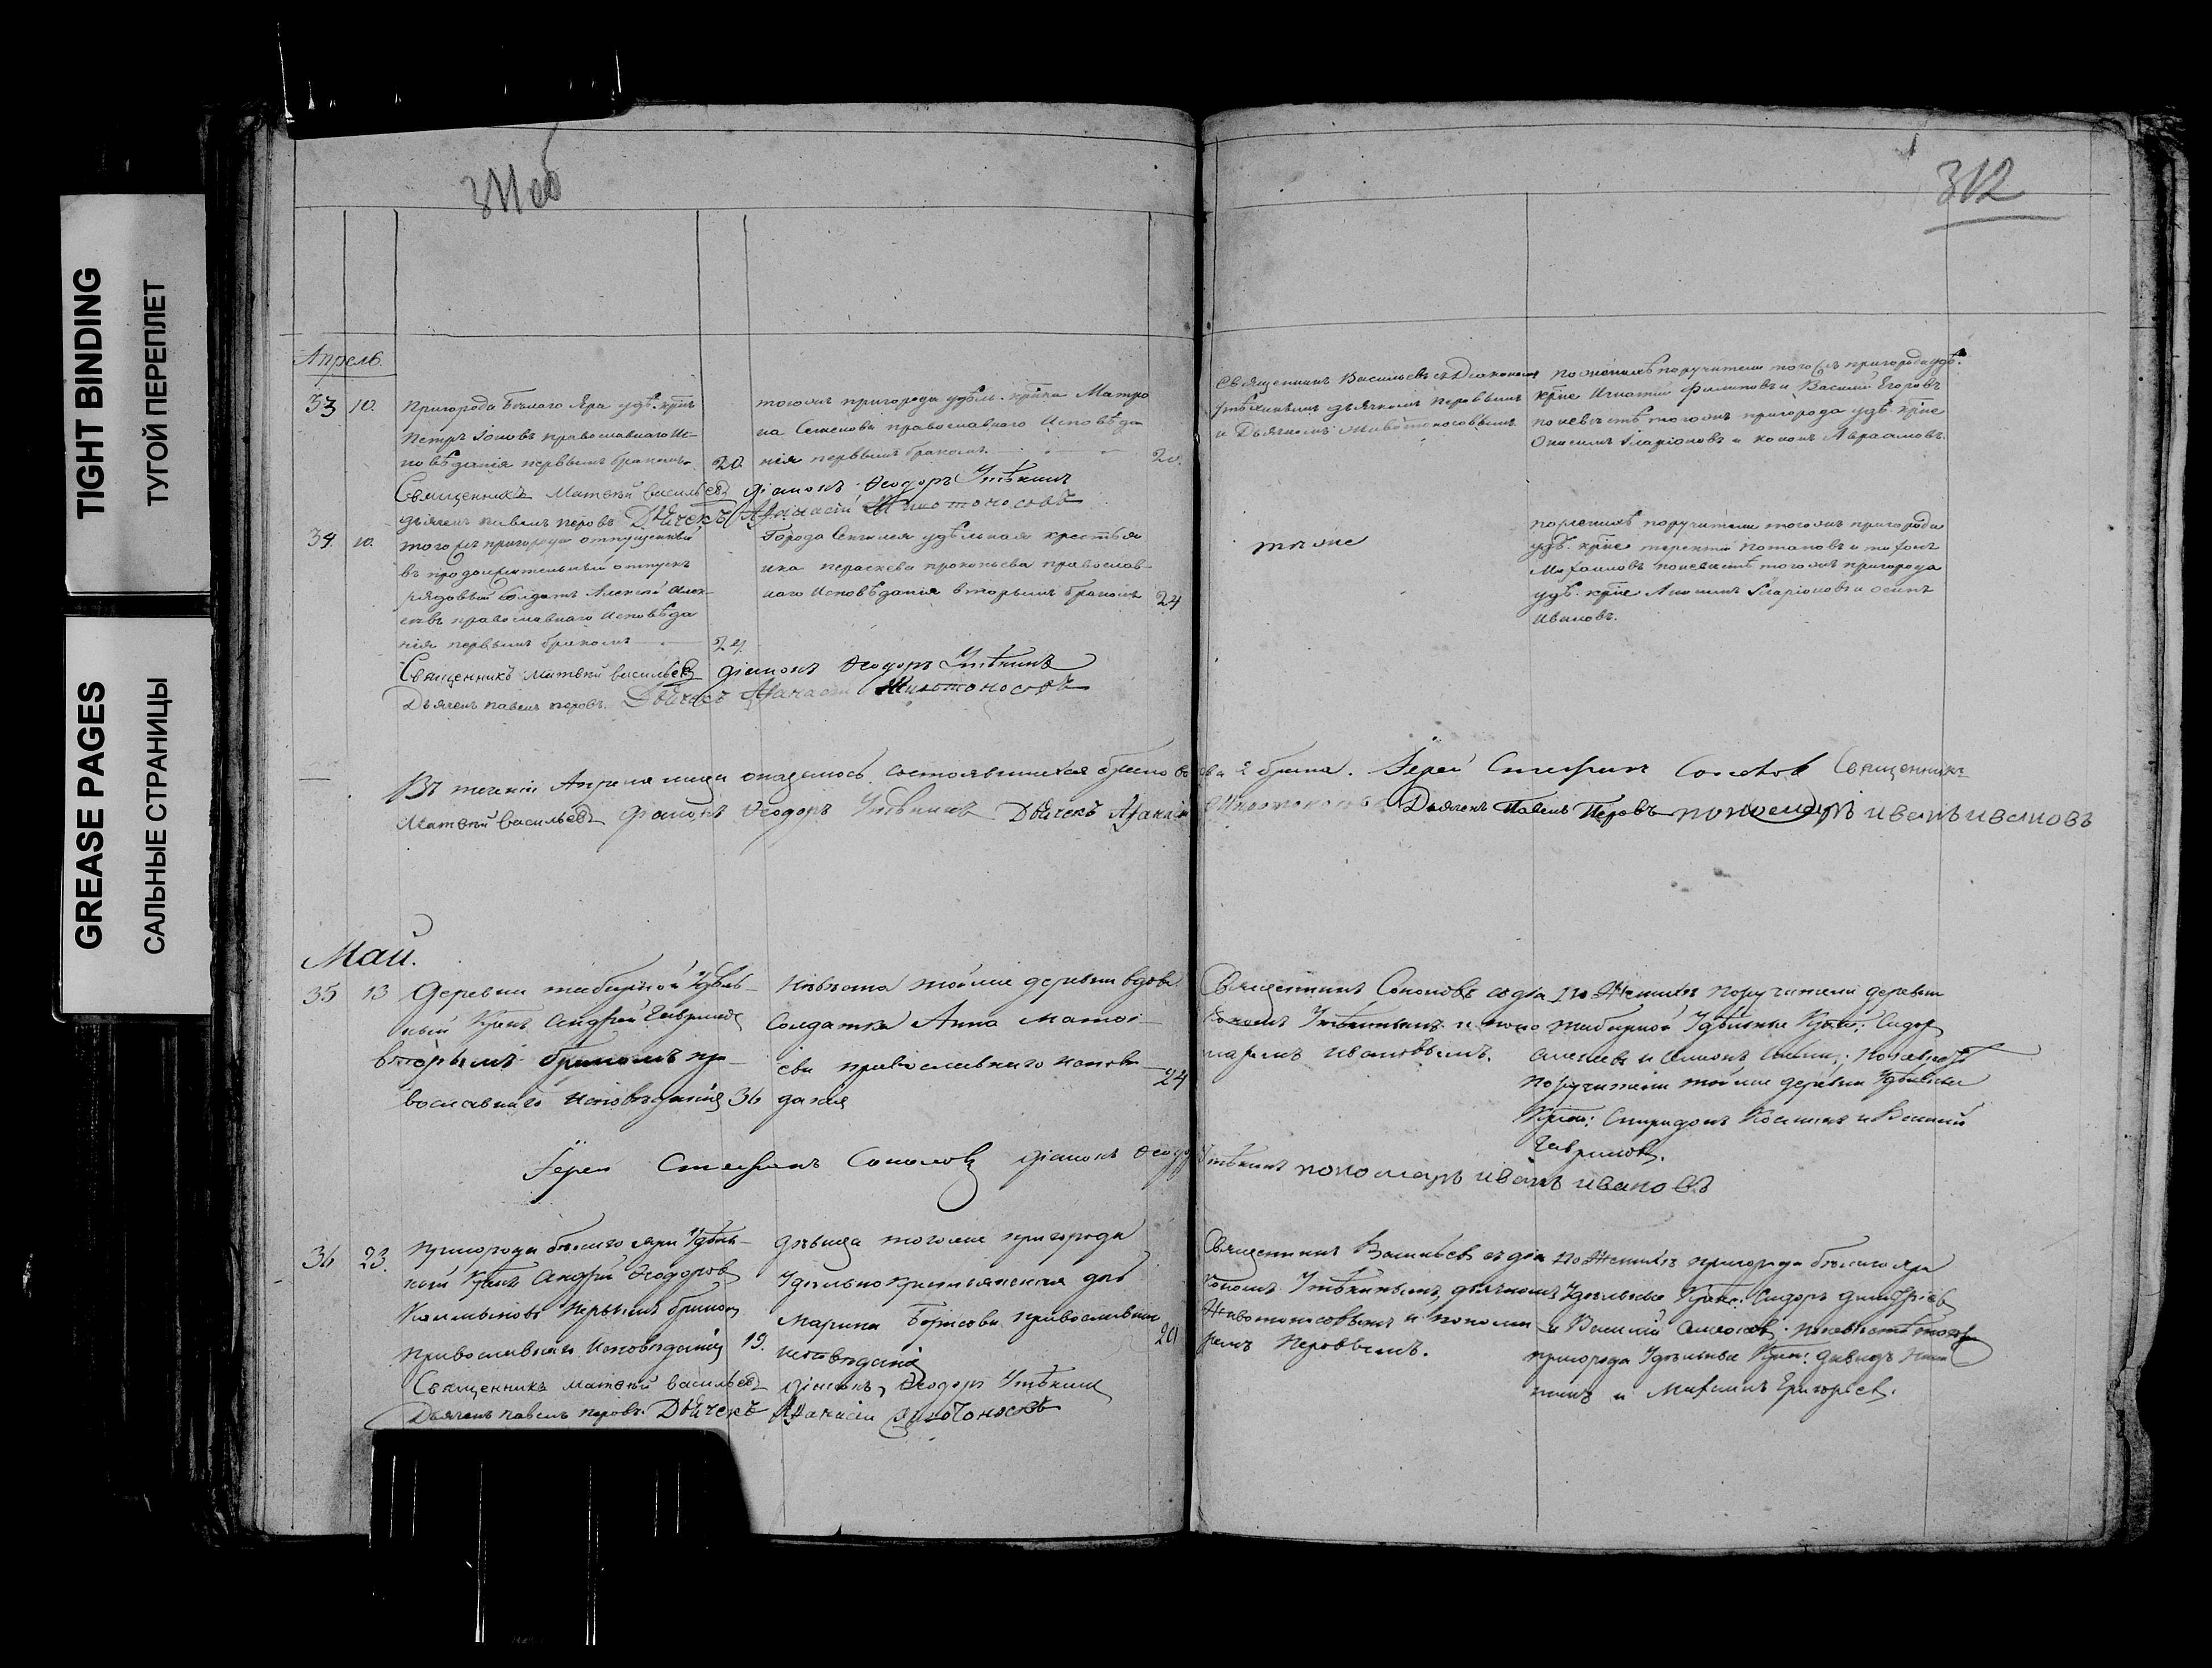 TIGHT BINDING
ТУГОЙ ПЕРЕПЛЕТ
GREASE PAGES
САЛЬНЫЕ СТРАНИЦЫ
311об
312
Апрель.
33 10. Пригорода Белаго Яра удѣ. крнъ
Петръ Іоновъ православнаго Ис-
повѣданія первымъ бракомъ 20
тогожъ пригорода удѣль. крнка Матро
на Семенова православнаго Исповѣда
нія первымъ бракомъ 20.
Священникъ Васильевъ съ Діакономъ
Утѣхинымъ дьячкомъ Перовымъ
и Дьячкомъ Животоносовымъ
по женихѣ поручители тогожъ пригорода удѣ.
крне Игнатій Филиповъ и Василій Егоровъ
по невѣстѣ тогожъ пригорода удѣ. крне
Онисимъ Иларіоновъ и Кононъ Авраамовъ.
Священникъ Матвѣй Васильевъ Діаконъ Ѳеодоръ Утѣхинъ
дьячекъ Павелъ Перовъ Дьячекъ Афанасій Животоносовъ
34. 10. тогожъ пригорода отпущенный
въ продолжительный отпускъ
рядовый Солдатъ Алексѣй Алек-
сѣевъ православнаго Исповѣда
нія первымъ бракомъ 24
Города Сенгилея удѣльная крестья
нка Параскева Прокопьева православ-
наго Исповѣданія вторымъ бракомъ 24
тѣ же
по женихѣ поручители тогожъ пригорода
удѣ. крне Терентій Потаповъ и
по невѣстѣ тогожъ пригорода
удѣ. крне Иларіоновъ и Осипъ
Ивановъ.
Священникъ Матвѣй Васильевъ Діаконъ Ѳеодоръ Утѣхинъ
Дьячекъ Павелъ Перовъ. Дьячекъ Афанасій Животоносовъ
Въ теченіи Апреля мца оказалось состоявшихся 2 брака. Іерей Стефанъ Соколовъ Священникъ
Матвѣй Васильевъ Діаконъ Ѳеодоръ Утѣхинъ Дьячекъ Афанасій Животоносовъ Дьячекъ Павелъ Перовъ пономарь Иванъ Ивановъ
Май.
35 13 Деревни Удѣль-
ный Крнъ Андрей Гавриловъ
вторымъ бракомъ пра-
вославнаго Исповѣданія 36
Невѣста тойже деревни вдова
Солдатка Анна Матвѣ-
ева православнаго исповѣ-
данія 24
Священникъ Соколовъ съ діа
кономъ Утѣхинымъ и поно
маремъ Ивановымъ.
По Женихѣ Поручители деревни
Удѣльные Крне: Сидоръ
Алексѣевъ и по невѣстѣ
поручители тойже деревни Удѣльные
Крне: Спиридонъ Косминъ и Василій
Гавриловъ.
Іерей Стефанъ Соколовъ Діаконъ Ѳеодоръ Утѣхинъ пономарь Иванъ Ивановъ
36 23. Пригорода Бѣлаго Яра Удѣль-
ный Крнъ Андрей Ѳеодоровъ
первымъ бракомъ
Православнаго Исповѣданія 19.
Дѣвица тогоже пригорода
Удѣльно крестьянская дочь
Марина Борисова православнаго
исповѣданія 20
Священникъ Васильевъ съ діа
кономъ Утѣхинымъ, дьячкомъ
Животоносовымъ и понома
ремъ Перовымъ.
По Женихѣ пригорода Бѣлаго Яра
Удѣльные Крне: Сидоръ Димитріевъ
и Василій по невѣстѣ тогоже
пригорода Удѣльные Крне: Давидъ
и Михаилъ Григорьевъ.
Священникъ Матвѣй Васильевъ Діаконъ Ѳеодоръ Утѣхинъ
Дьячекъ Павелъ Перовъ. Дьячекъ Афанасій Животоносовъ